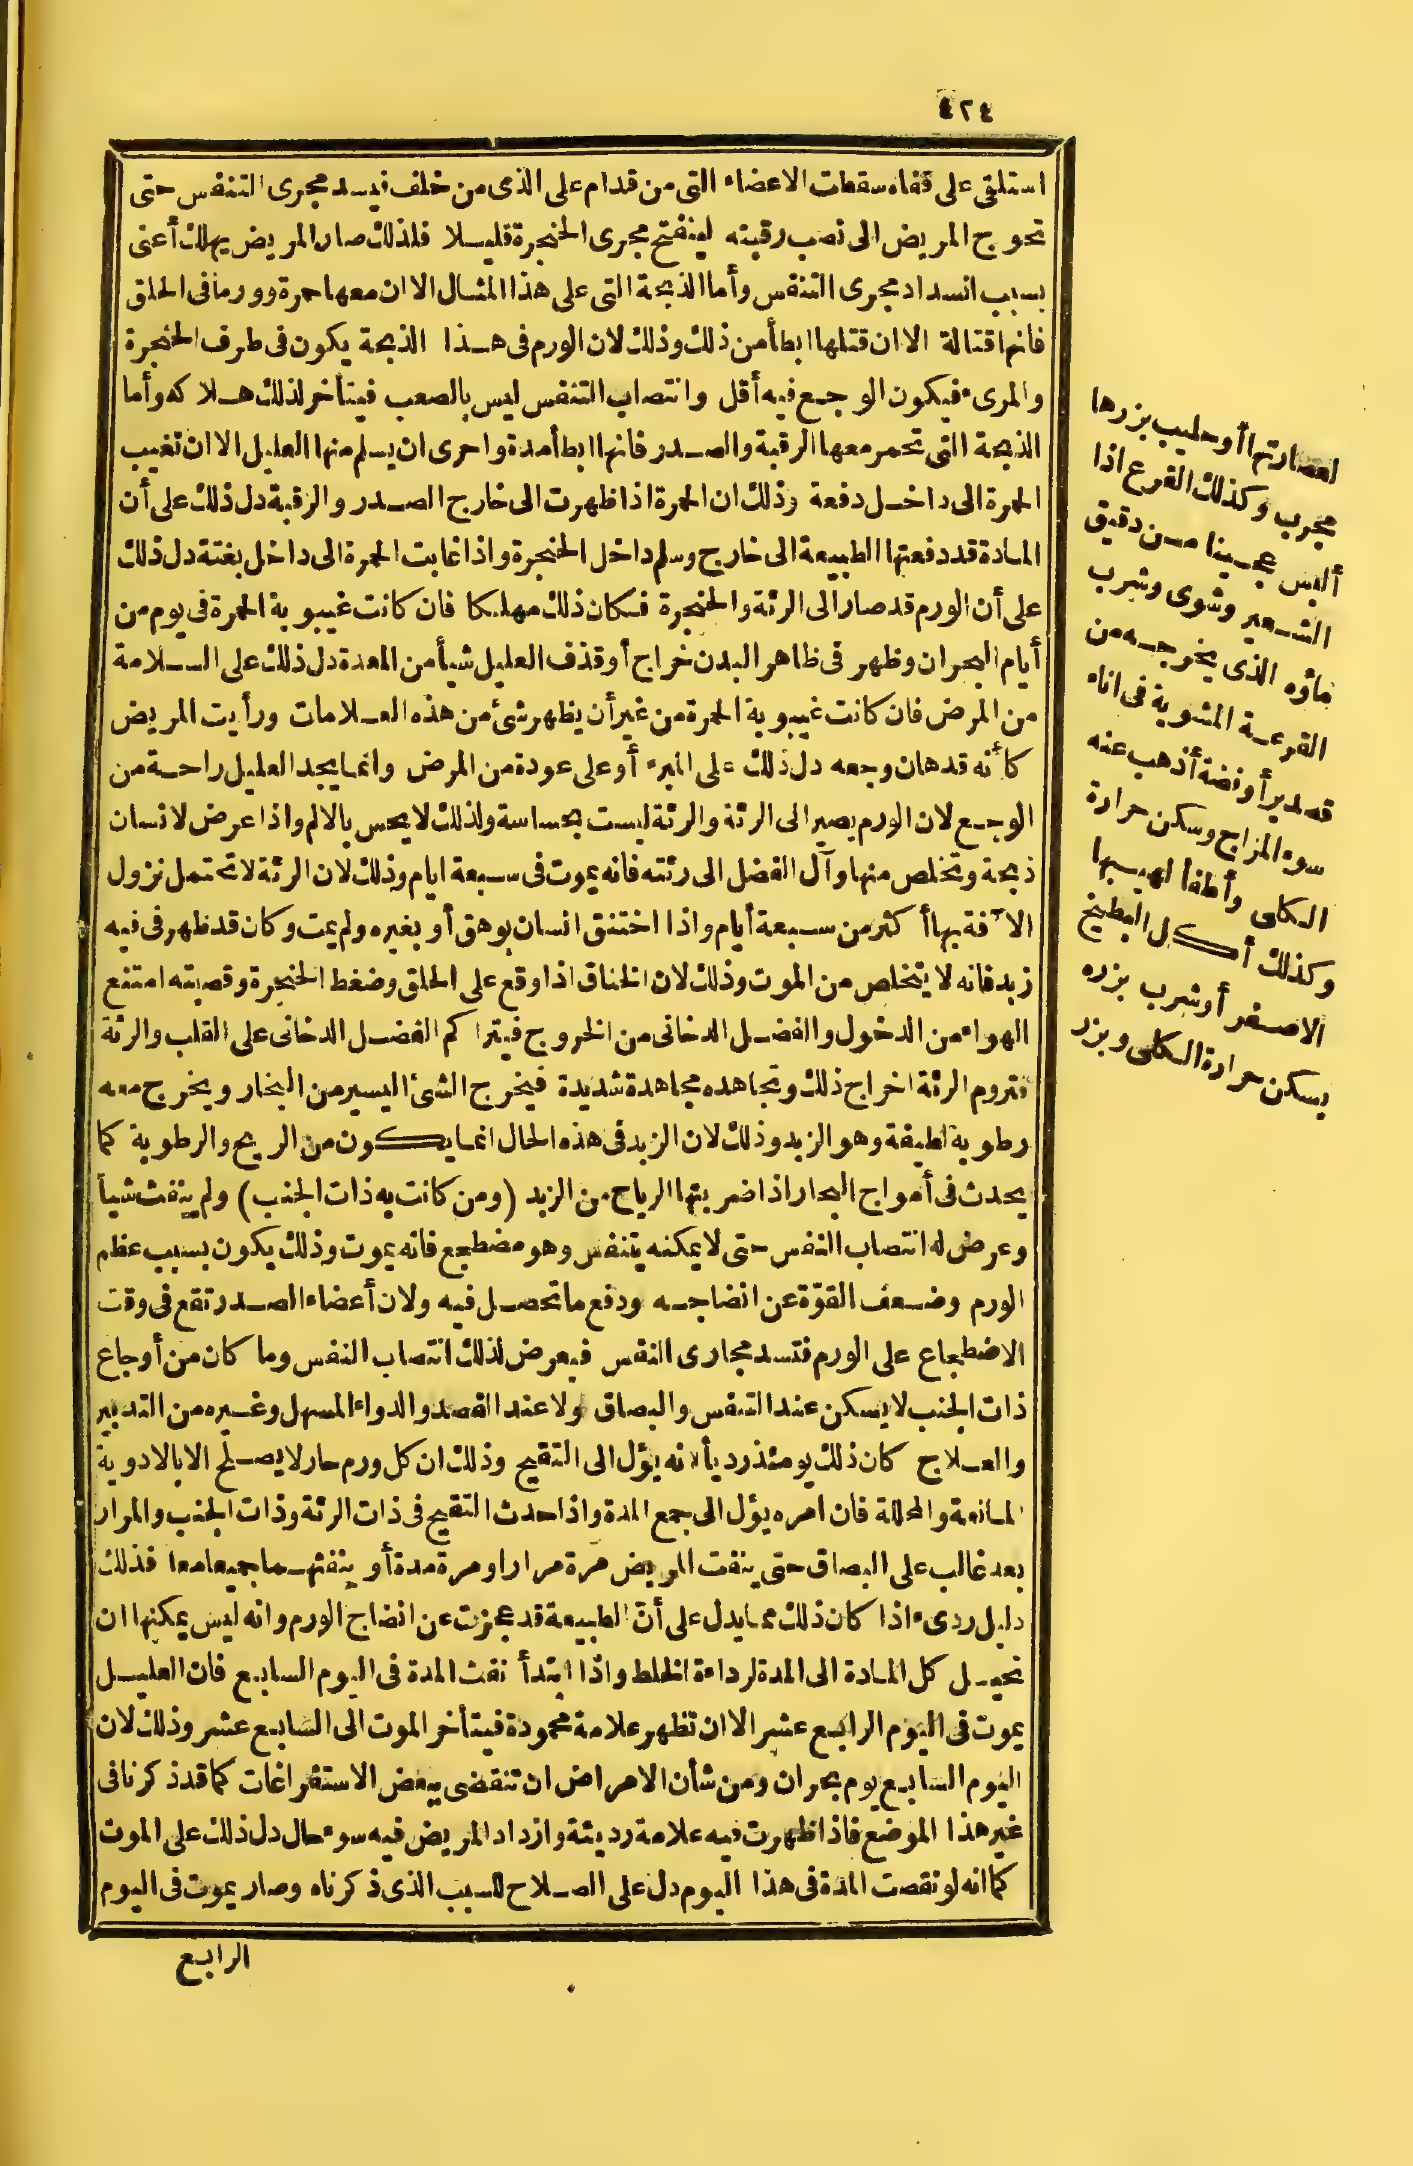 ٤٢٤
استلقى على قفاه سقطت الاعضاء التى من قدام على الذى من خلف فيسد مجرى التنفس حتى
تحوج المريض الى نصب رقبته لينفتح مجرى الحنجرة قليلا فلذلك صار المريض يهلك أعنى
بسبب انسداد مجرى التنفس وأما الذبحة التى على هذا المثال الا ان معها حمرة وورما فى الحلق
فانها قتالة الا ان قتلها ابطأ من ذلك وذلك لان الورم فى هذا الذبحة يكون فى طرف الحنجرة
والمرىء فيكون الوجع فيه أقل وانتصاب التنفس ليس بالصعب فيتأخر لذلك هلاكه وأما
الذبحة التى تحمر معها الرقبة والصدر فانها ابطأ مدة واحرى ان يسلم منها العليل الا ان تغيب
الحمرة الى داخل دفعة وذلك ان الحمرة اذا ظهرت الى خارج الصدر والرقبة دل ذلك على أن
المادة قد دفعتها الطبيعة الى خارج وسلم داخل الحنجرة واذا غابت الحمرة الى داخل بغتة دل ذلك
على أن الورم قد صار الى الرئة والحنجرة فكان ذلك مهلكا فان كانت غيبوبة الحمرة فى يوم من
أيام البحران وظهر فى ظاهر البدن خراج أو قذف العليل شيأ من المعدة دل ذلك على السلامة
من المرض فان كانت غيبوبة الحمرة من غير أن يظهر شئ من هذه العلامات ورأيت المريض
كأنه قد هان وجعه دل ذلك على البرء أو على عودة من المرض وانما يجد العليل راحة من
الوجع لان الورم يصير الى الرئة والرئة ليست بحساسة ولذلك لا يحس بالالم واذا عرض لانسان
ذبحة وتخلص منها وآل الفضل الى رئته فانه يموت فى سبعة ايام وذلك لان الرئة لا تحتمل نزول
الآفة بها أكثر من سبعة أيام واذا اختنق انسان بوهق أو بغيره ولم يمت وكان قد ظهر فى فيه
زبد فانه لا يتخلص من الموت وذلك لان الخناق اذا وقع على الحلق وضغط الحنجرة وقصبته امتنع
الهواء من الدخول والفضل الدخانى من الخروج فيتراكم الفضل الدخانى على القلب والرئة
فتروم الرئة اخراج ذلك وتجاهده مجاهدة شديدة فيخرج الشئ اليسير من البخار ويخرج معه
رطوبة لطيفة وهو الزبد وذلك لان الزبد فى هذه الحال انما يكون من الريح والرطوبة كما
يحدث فى أمواج البحار اذا ضربتها الرياح من الزبد (ومن كانت به ذات الجنب) ولم ينفث شيأ
وعرض له انتصاب النفس حتى لا يمكنه يتنفس وهو مضطجع فانه يموت وذلك يكون بسبب عظم
الورم وضعف القوّة عن انضاجه ودفع ما تحصل فيه ولان أعضاء الصدر تقع فى وقت
الاضطجاع على الورم فتسد مجارى النفس فيعرض لذلك انتصاب النفس وما كان من أوجاع
ذات الجنب لا يسكن عند التنفس والبصاق ولا عند الفصد والدواء المسهل وغيره من التدبير
والعلاج كان ذلك يومئذ رديأ لانه يؤل الى التقيح وذلك ان كل ورم حار لا يصلح الا بالادوية
المانعة والمحللة فان امره يؤل الى جمع المدة واذا حدث التقيح فى ذات الرئة وذات الجنب والمرار
بعد غالب على البصاق حتى ينفث المريض مرّة مرارا ومرة مدة أو ينفثهما جميعا معا فذلك
دليل ردىء اذا كان ذلك مما يدل على أنّ الطبيعة قد عجزت عن انضاج الورم وانه ليس يمكنها ان
تحيل كل المادة الى المدة لرداءة الخلط واذا ابتدأ نفث المدة فى اليوم السابع فان العليل
يموت فى اليوم الرابع عشر الا ان تظهر علامة محمودة فيتأخر الموت الى السابع عشر وذلك لان
اليوم السابع يوم بحران ومن شأن الامراض ان تنقضى ببعض الاستفراغات كما قد ذكرنا فى
غير هذا الموضع فاذا ظهرت فيه علامة رديئة وازداد المريض فيه سوء حال دل ذلك على الموت
كما انه لو نقصت المدة فى هذا اليوم دل على الصلاح للسبب الذى ذكرناه وصار يموت فى اليوم
الرابع
لعصارتها أو حليب بزرها
مجرب وكذلك القرع اذا
ألبس عجينا من دقيق
الشعير وشوى وشرب
ماؤه الذى يخرج من
القرعة المشوية فى اناء
قصدير أو فضة أذهب عنه
سوء المزاج وسكن حرارة
الكلى وأطفأ لهيبها
وكذلك أكل البطيخ
الاصفر أو شرب بزره
يسكن حرارة الكلى وبزر